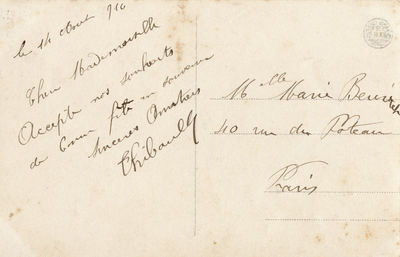 le 14 Aout 910
Cher Mademoiselle
Accepte nos souhaits
de bonne fête en souvenir
Sinceres Amitiers
Thibault
Mlle Marie
40 rue du Poteau
Paris